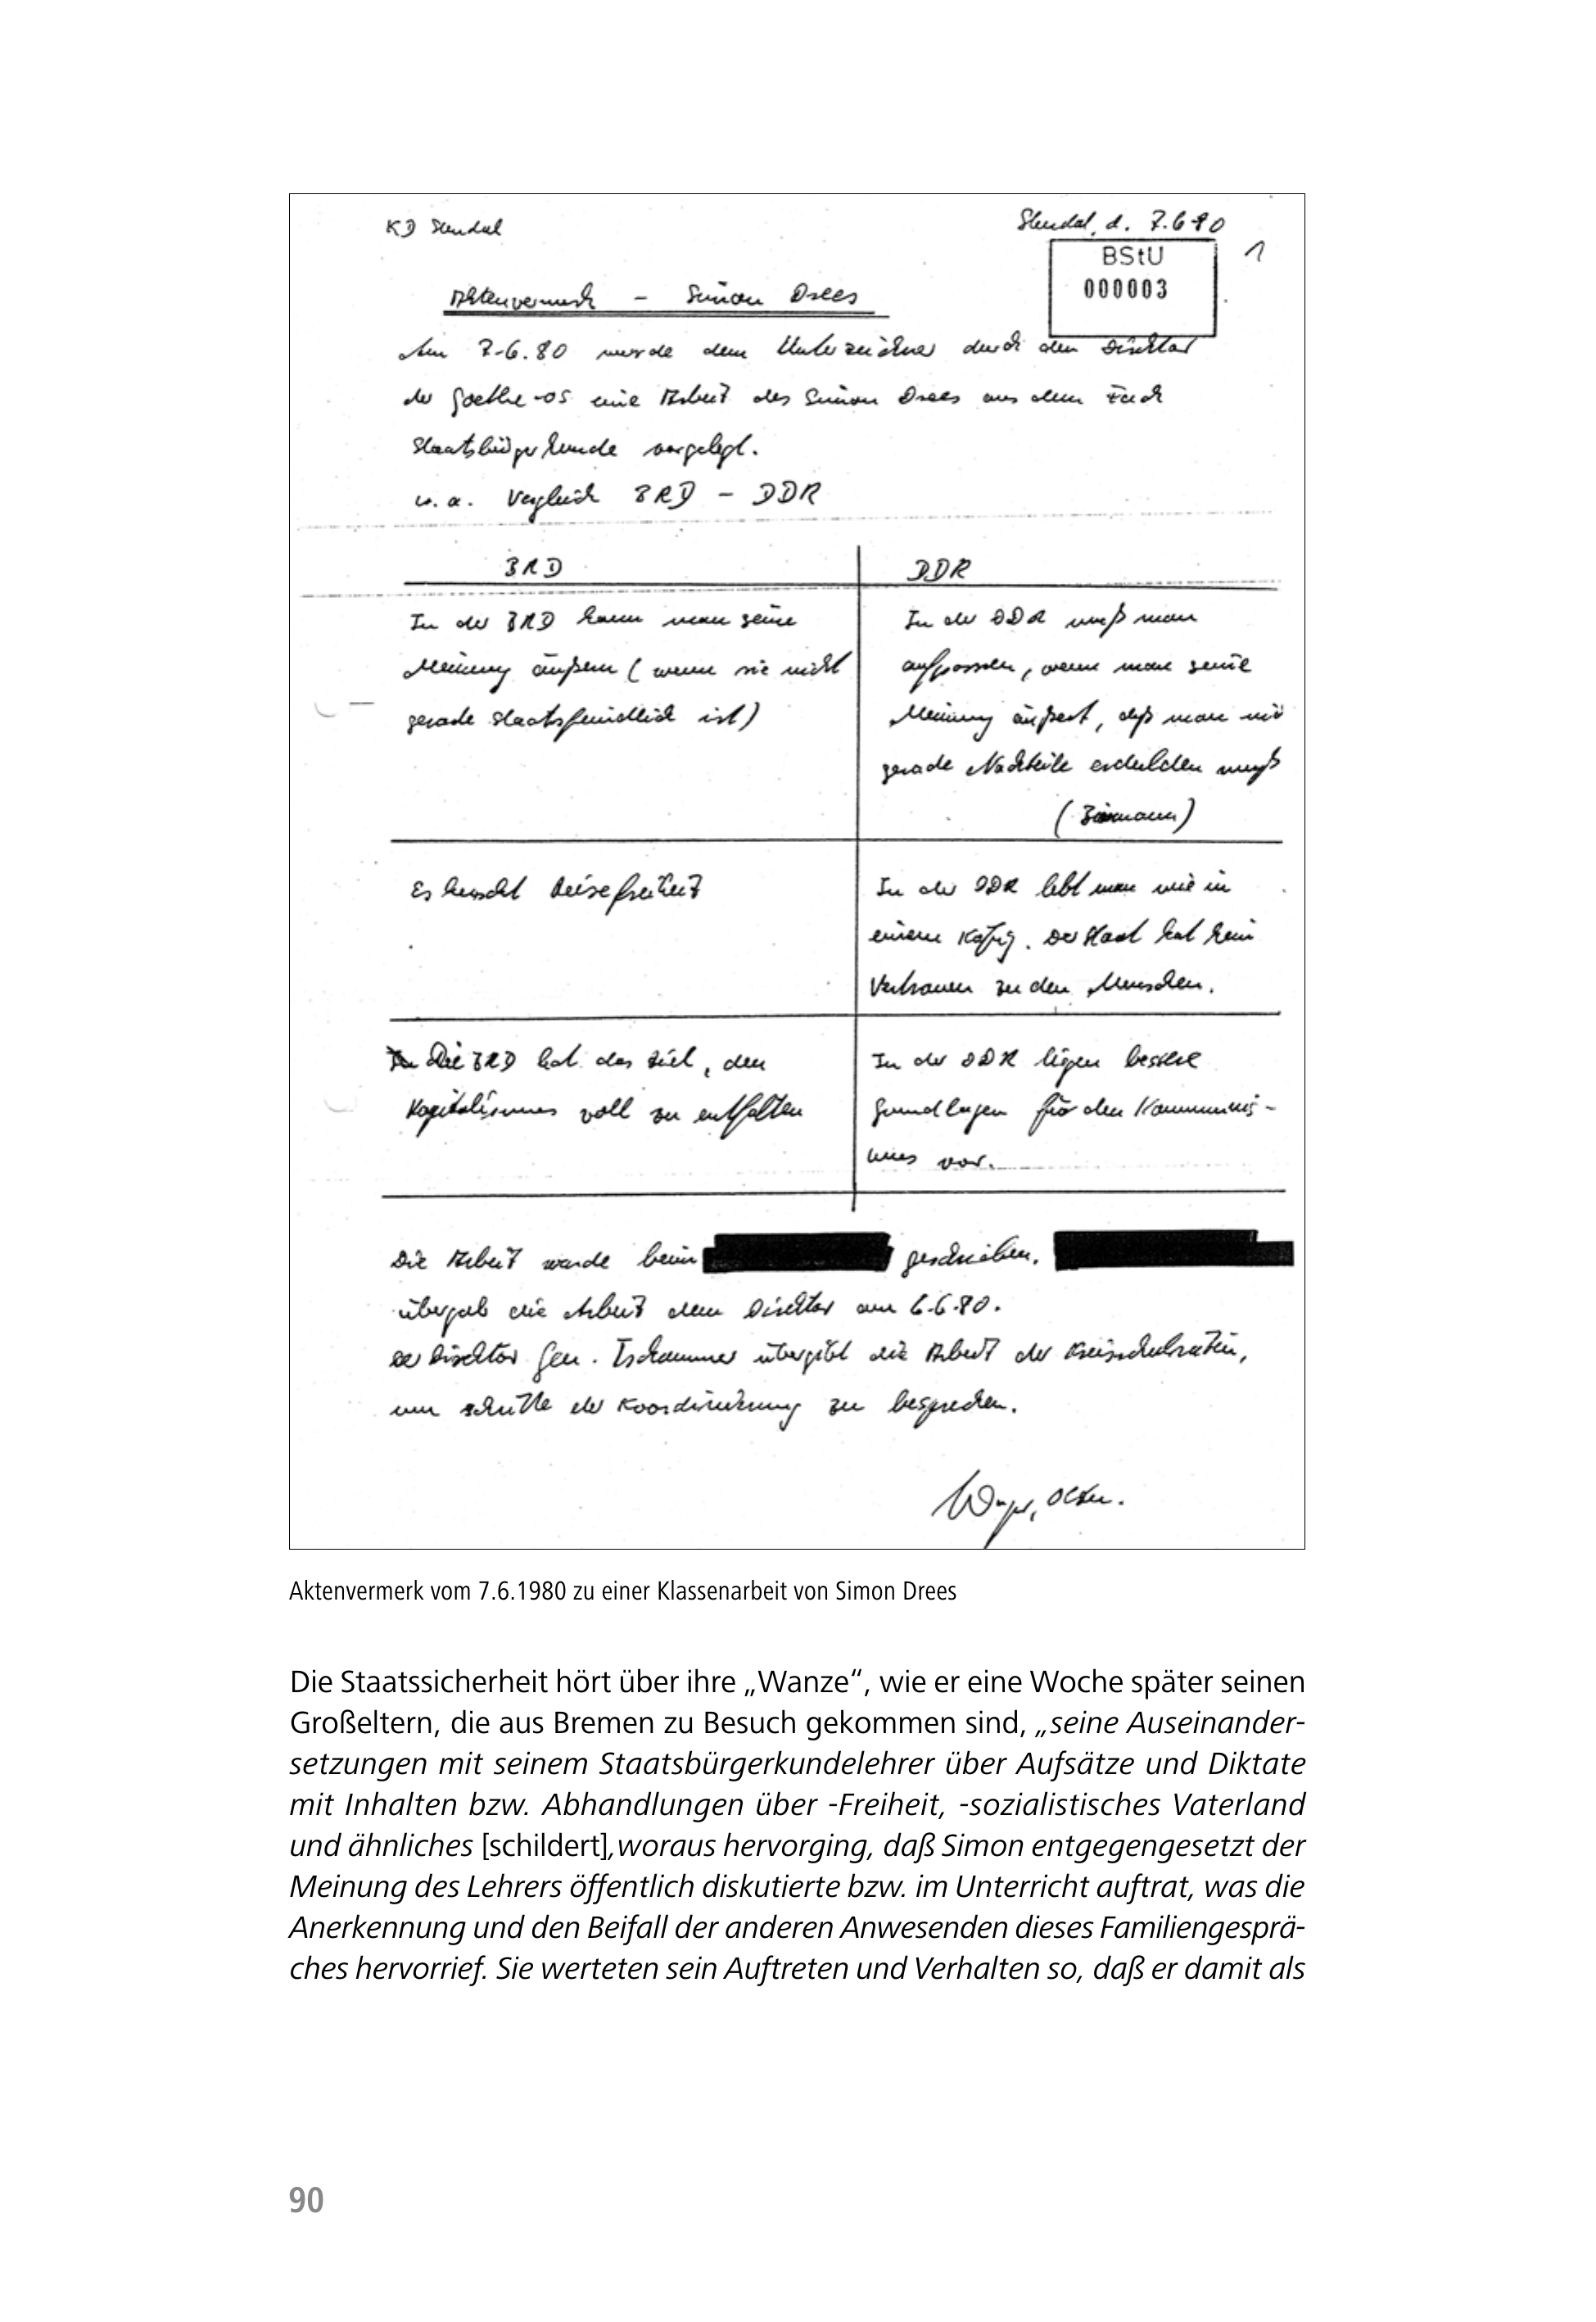 KD Stendal
Stendal, d. 7.6.80
BStU
000003
1
Aktenvermerk – Simon Drees
Am 7.6.80 wurde dem Unterzeichner durch den Direktor
der Goethe-OS eine Arbeit des Simon Drees aus dem Fach
Staatsbürgerkunde vorgelegt.
u. a. Vergleich BRD – DDR
BRD
DDR
In der BRD kann man seine
Meinung äußern (wenn sie nicht
gerade staatsfeindlich ist)
In der DDR muß man
aufpassen, wenn man seine
Meinung äußert, daß man nicht
gerade Nachteile erdulden muß
(Biermann)
Es herrscht Reisefreiheit
In der DDR lebt man wie in
einem Käfig. Der Staat hat kein
Vertrauen zu den Menschen.
Die BRD hat das Ziel, den
Kapitalismus voll zu entfalten
In der DDR liegen bessere
Grundlagen für den Kommunis-
mus vor.
Die Arbeit wurde beim geschrieben.
übergab die Arbeit dem Direktor am 6.6.80.
Der Direktor Gen. Tschammer übergibt die Arbeit der Kreisschulrätin,
um Schritte der Koordinierung zu besprechen.
Aktenvermerk vom 7.6.1980 zu einer Klassenarbeit von Simon Drees
Die Staatssicherheit hört über ihre „Wanze“, wie er eine Woche später seinen
Großeltern, die aus Bremen zu Besuch gekommen sind, „seine Auseinander-
setzungen mit seinem Staatsbürgerkundelehrer über Aufsätze und Diktate
mit Inhalten bzw. Abhandlungen über -Freiheit, -sozialistisches Vaterland
und ähnliches [schildert],woraus hervorging, daß Simon entgegengesetzt der
Meinung des Lehrers öffentlich diskutierte bzw. im Unterricht auftrat, was die
Anerkennung und den Beifall der anderen Anwesenden dieses Familiengesprä-
ches hervorrief. Sie werteten sein Auftreten und Verhalten so, daß er damit als
90